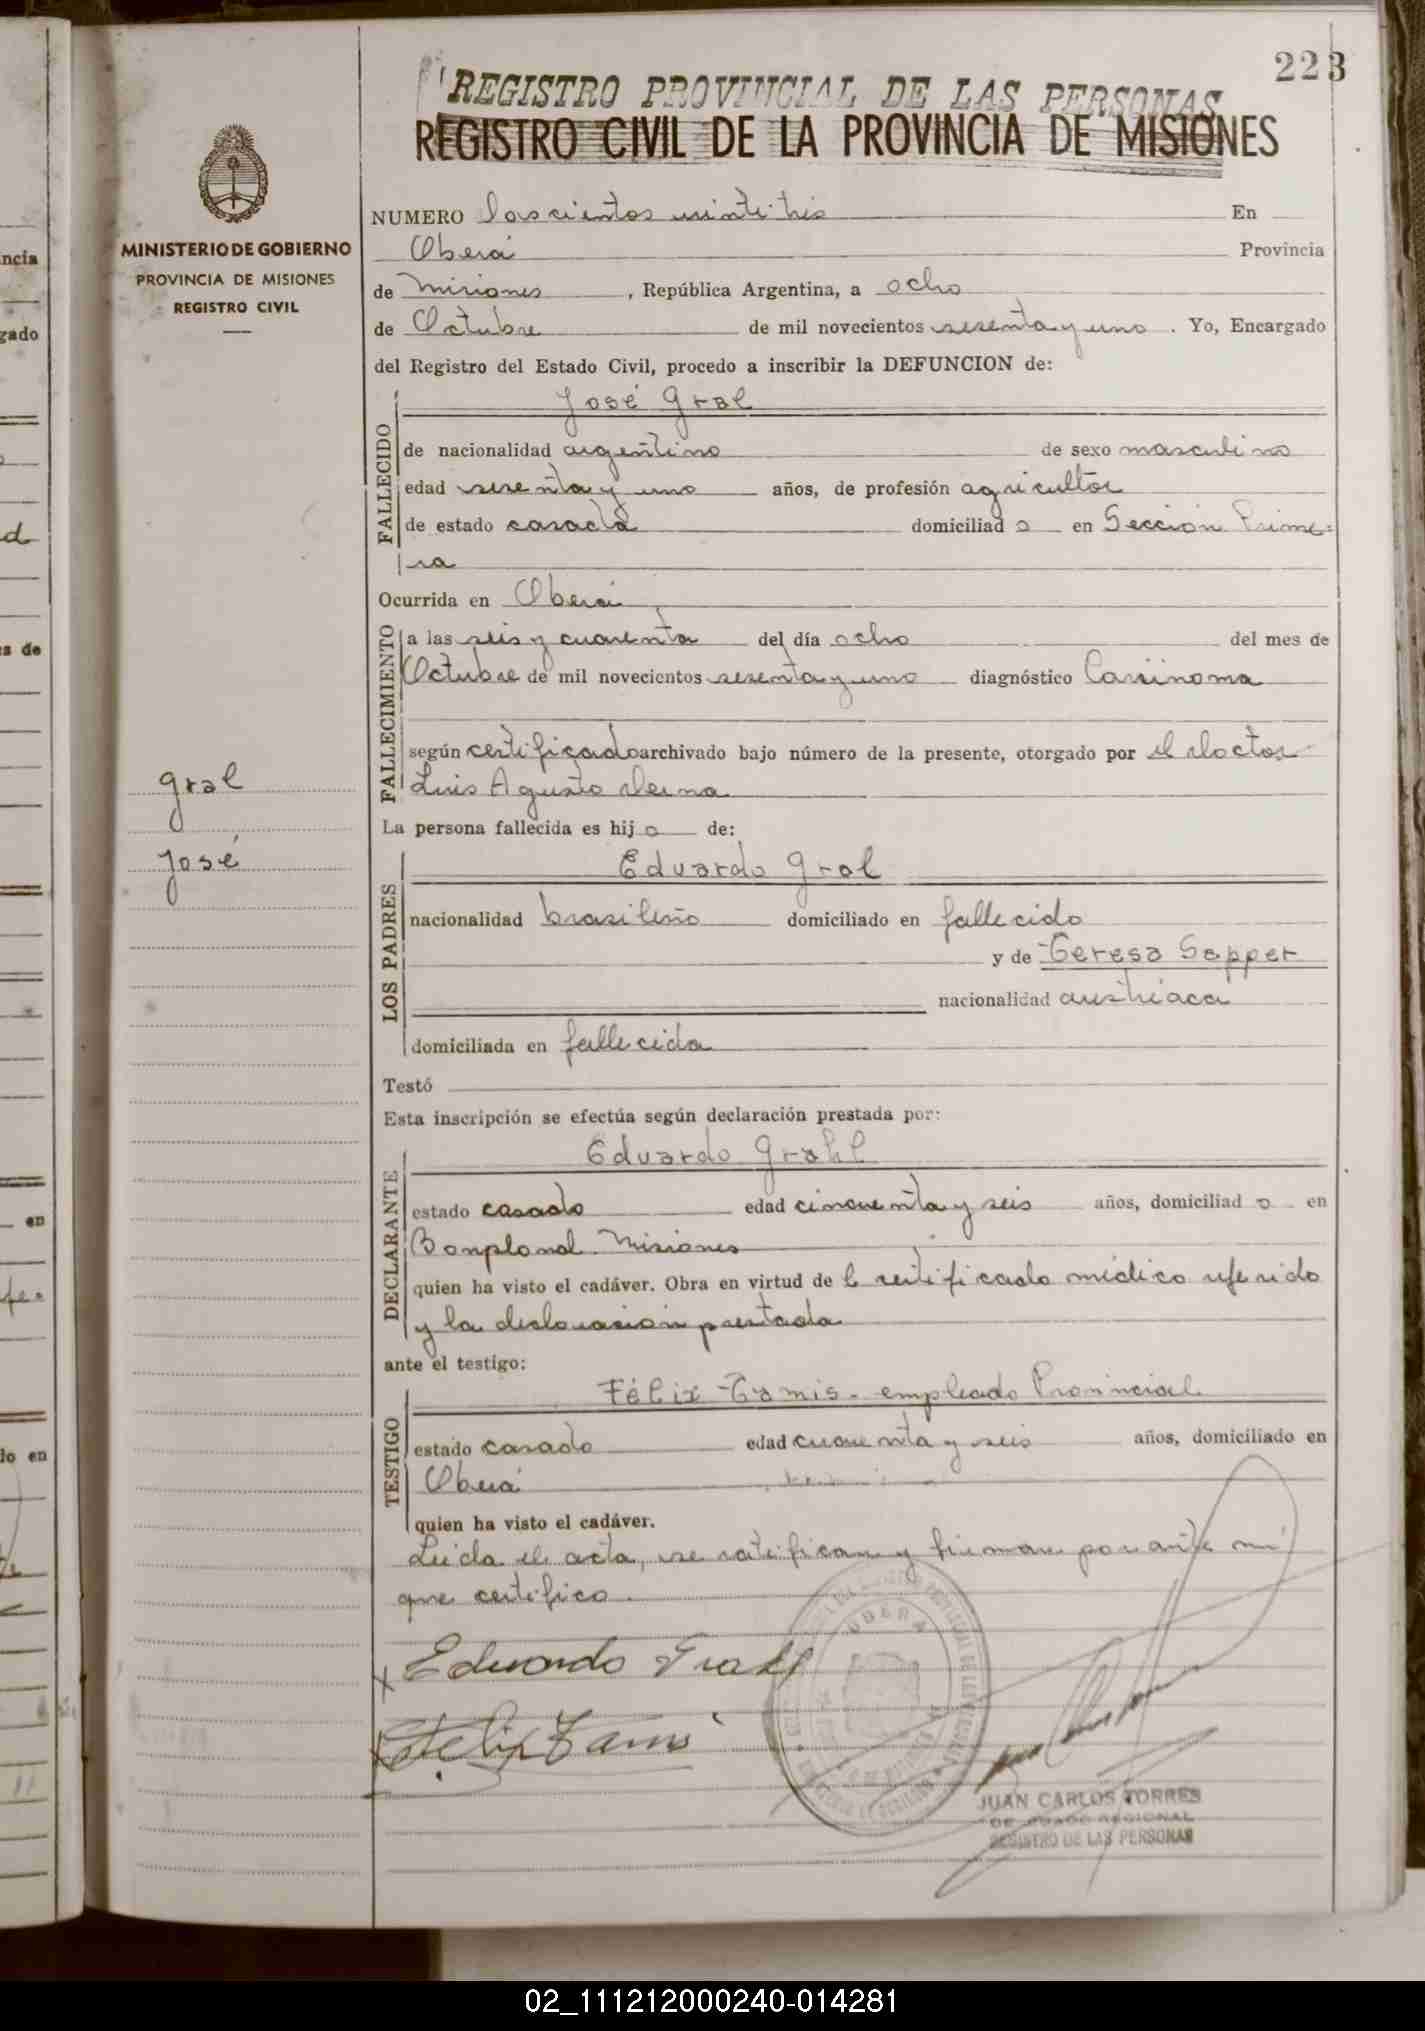 223
REGISTRO PROVINCIAL DE LAS PERSONAS
REGISTRO CIVIL DE LA PROVINCIA DE MISIONES
MINISTERIO DE GOBIERNO
PROVINCIA DE MISIONES
REGISTRO CIVIL
NUMERO doscientos veintitrés En
Oberá Provincia
de Misiones, República Argentina, a ocho
de Octubre de mil novecientos sesenta y uno. Yo, Encargado
del Registro del Estado Civil, procedo a inscribir la DEFUNCION de:
FALLECIDO
José Gral
de nacionalidad argentino de sexo masculino
edad sesenta y uno años, de profesión agricultor
de estado casado domiciliado en Sección Prime=
ra
Ocurrida en Oberá
FALLECIMIENTO
a las seis y cuarenta del día ocho del mes de
Octubre de mil novecientos sesenta y uno diagnóstico Carcinoma
según certificado archivado bajo número de la presente, otorgado por el doctor
Luis Agusto
Gral
José
La persona fallecida es hijo de:
LOS PADRES
Eduardo Gral
nacionalidad brasileño domiciliado en fallecido
y de Teresa Sapper
nacionalidad austriaca
domiciliada en fallecida
Testó
Esta inscripción se efectúa según declaración prestada por:
DECLARANTE
Eduardo Grahl
estado casado edad cincuenta y seis años, domiciliado en
Bonpland. Misiones
quien ha visto el cadáver. Obra en virtud del certificado médico referido
y la declaración prestada
ante el testigo:
TESTIGO
Félix Tamis. empleado Provincial
estado casado edad cuarenta y seis años, domiciliado en
Oberá
quien ha visto el cadáver.
Leída el acta, se ratifican y firman por ante mí
que certifico.
Eduardo Grahl
Felix Tamis
OBERA
JUAN CARLOS TORRES
REGIONAL
REGISTRO DE LAS PERSONAS
02_111212000240-014281